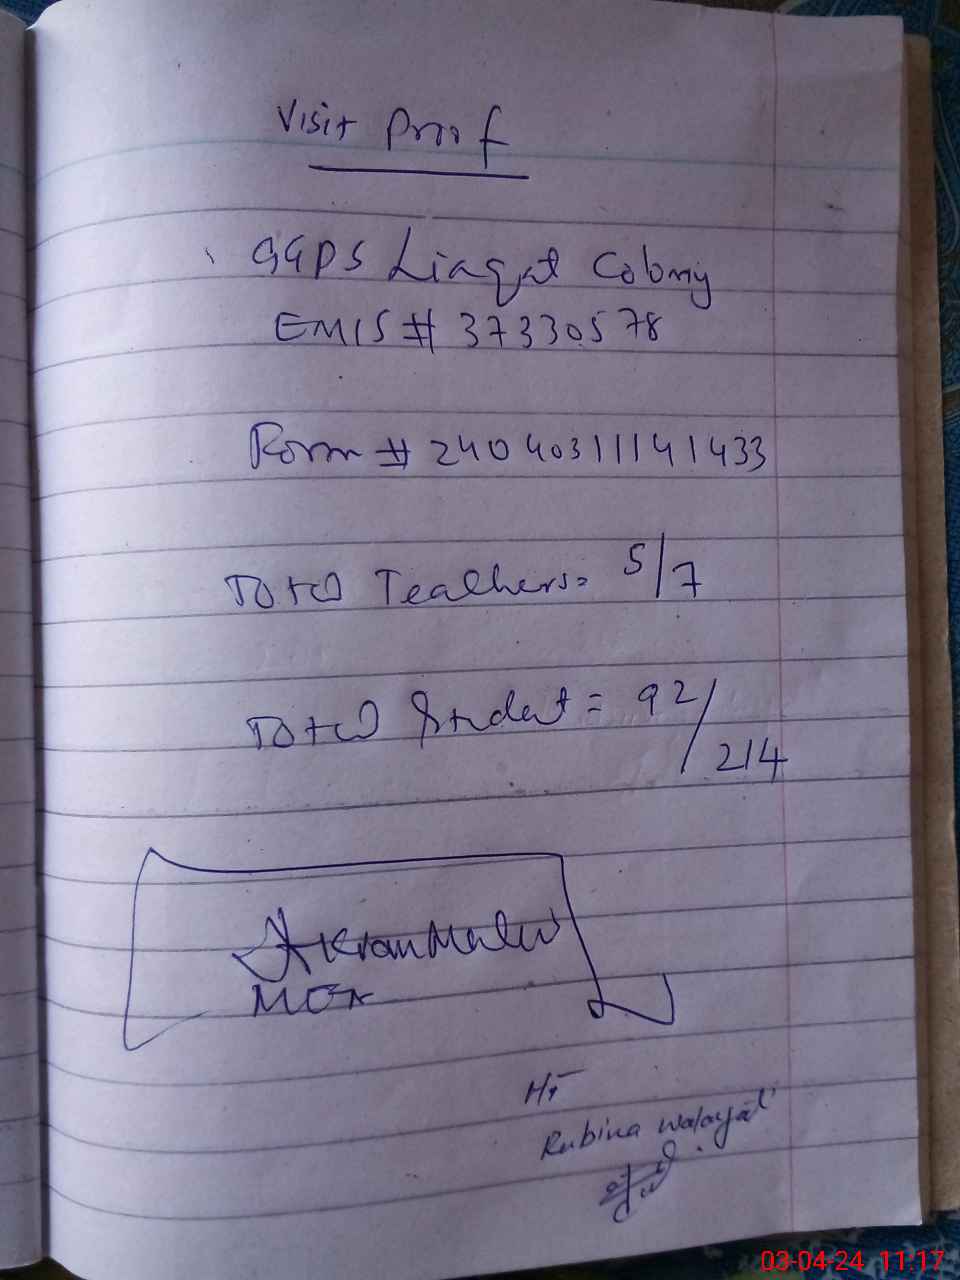 Visit Proof
GGPS Liaqat Colony
EMIS # 37330578
Form # 24040311141433
Total Teachers = 5/7
Total Student = 92/
214
Akram
HT
Rubina Walayat
03-04-24 11.17